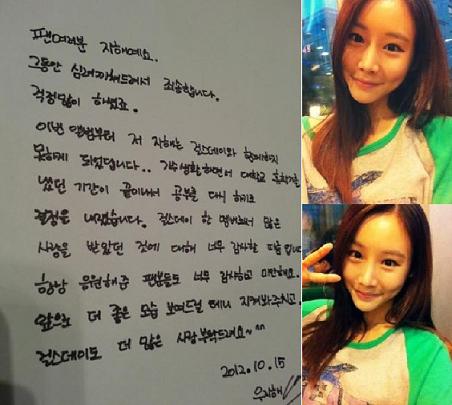 팬여러분 지해예요..
그동안 심려끼쳐드려서 죄송합니다.
걱정많이 하셨죠.
이번 앨범부터 저 지해는 걸스데이와 함께하지
못하게 되었답니다.. 가수생활하면서 대학교 휴학기를
냈던 기간이 끝이나서 공부를 다시 하기로
결정을 내렸습니다. 걸스데이 한 멤버로서 많은
사랑을 받았던 것에 대해 너무 감사할 따름입니다
항상 응원해준 팬분들도 너무 감사하고 미안해요.
앞으로 더 좋은 모습 보여드릴 테니 지켜봐주시고.
걸스데이도 더 많은 사랑부탁드려요~^^
2012.10.15
우지해